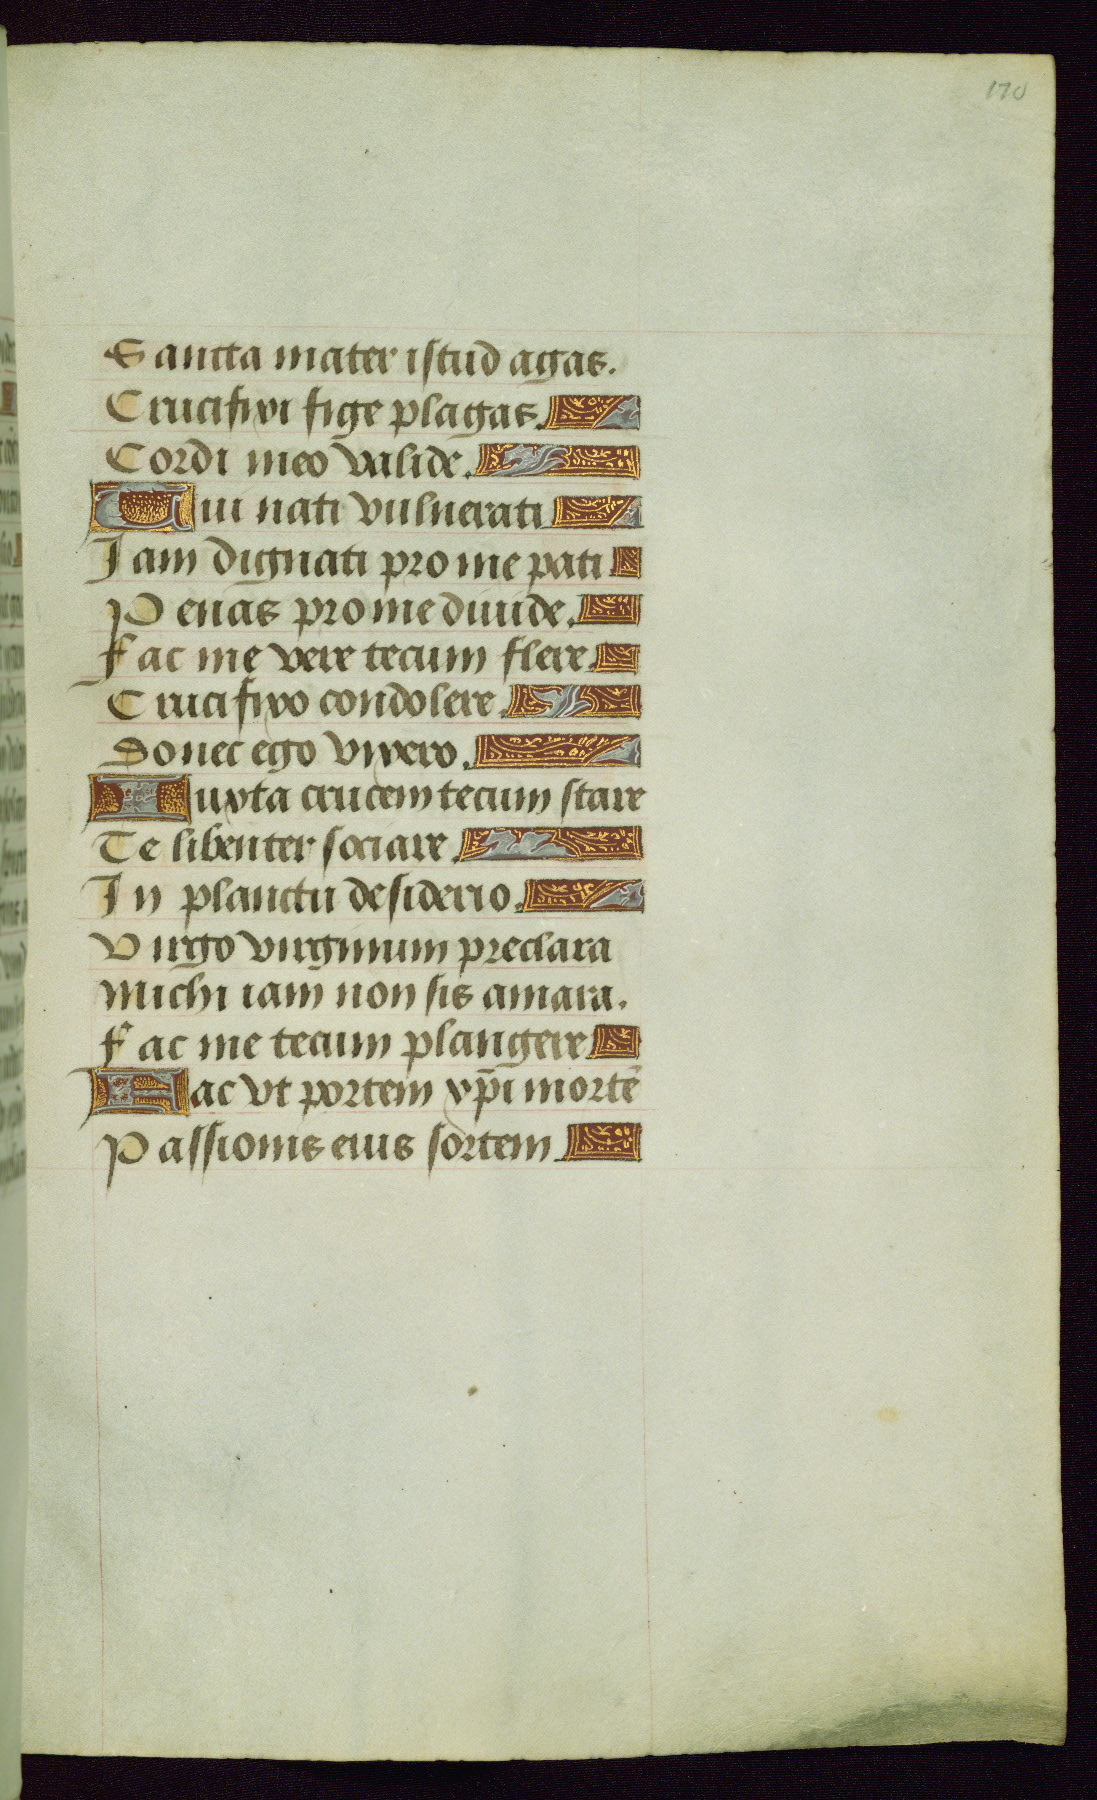 170
Sancta mater istud agas.
Crucifixi fige plagas.
Cordi meo valide.
Tui nati vulnerati
Iam dignati pro me pati
Penas pro me diuide.
Fac me vere tecum flere.
Crucifixo condolere.
Donec ego vixero.
Iuxta crucem tecum stare
Te libenter sociare.
In planctu desiderio.
Virgo virginum preclara
Michi iam non sis amara.
Fac me tecum plangere
Fac vt portem xp̄i mortē
Passionis eius sortem